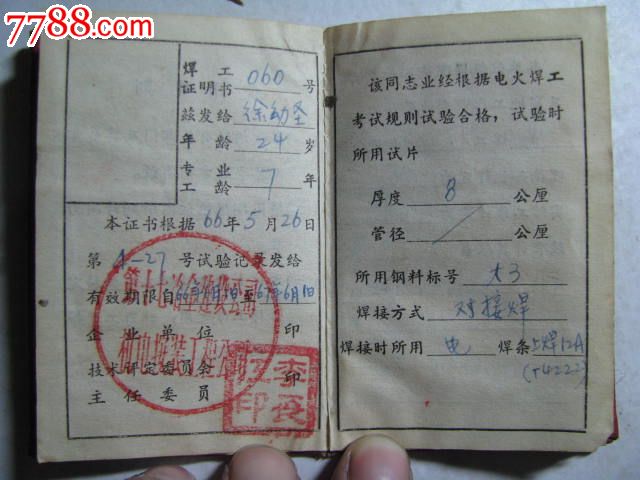 7788.com
中国收藏热线
焊工
证明书 060 号
兹发给 徐幼圣
年龄 24 岁
专业
工龄 7 年
本证书根据 66年5月26日
第 4-27 号试验记录发给
有效期限自66年6月1日至67年6月1日
企业单位 印
技术评定委员会
主任委员 印
该同志业经根据电火焊工
考试规则试验合格，试验时
所用试片
厚度 8 公厘
管径 / 公厘
所用钢料标号 大3
焊接方式 对接焊
焊接时所用 电 焊条 上焊12A
(T422)